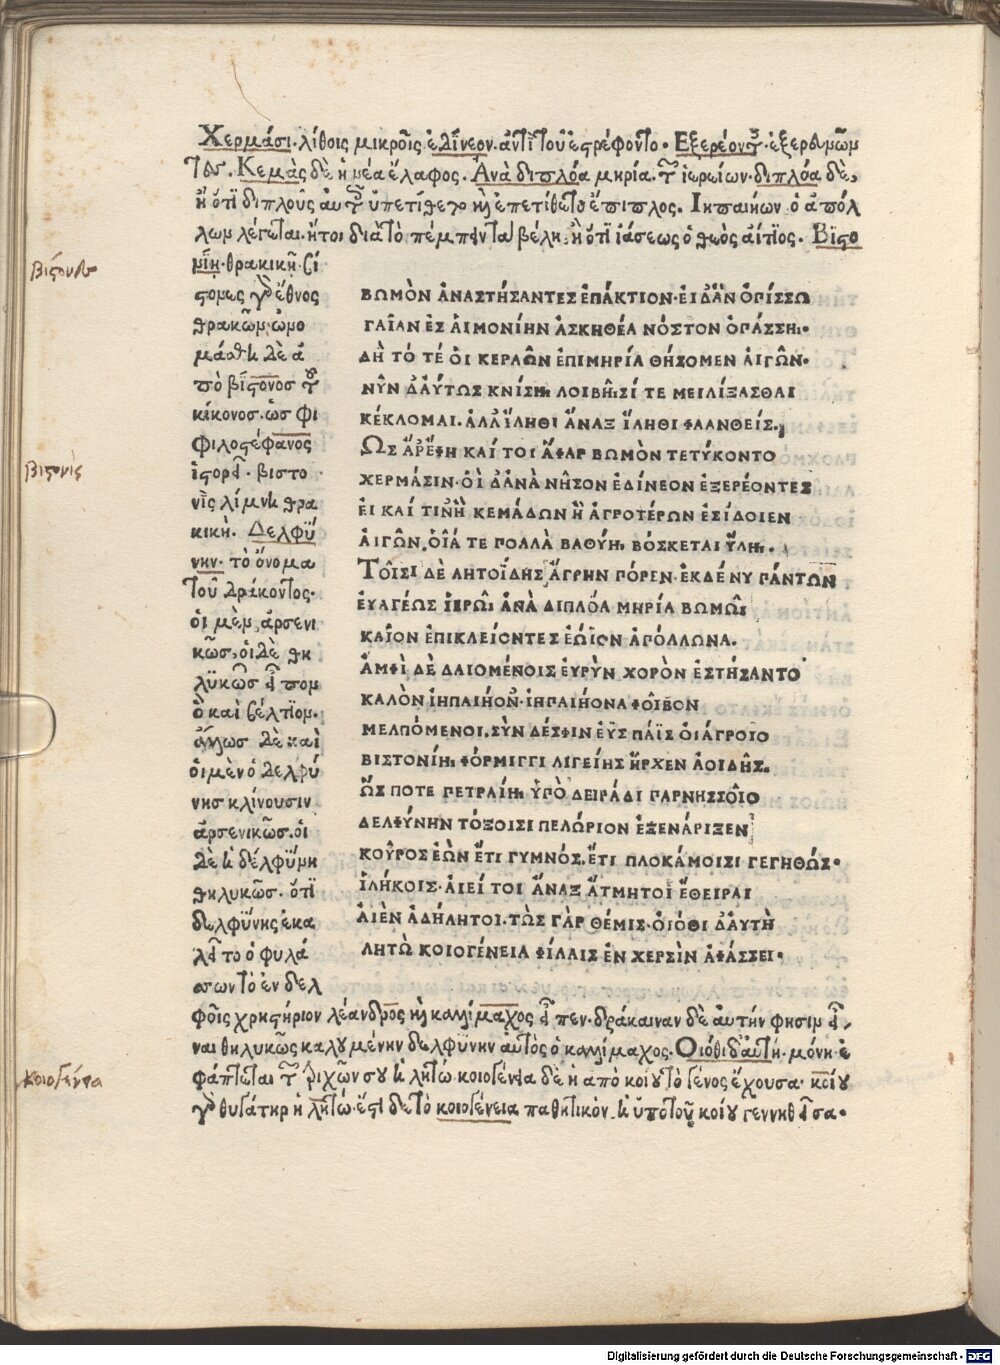 Χερμάσι· λίθοις μικροῖς ἐδίνεον· ἀντὶ τοῦ ἐστρέφοντο. Ἐξερέοντες· ἐξερευνῶν
τες. Κεμὰς δὲ ἡ νέα ἔλαφος. Ἀνὰ διπλόα μηρία· τῶν ἱερείων· διπλόα δὲ,
ἢ ὅτι διπλοῦς αὐτοῖς ὑπετίθετο καὶ ἐπετίθετο ἐπίπλος. Ἰηπαιήων ὁ ἀπόλ
λων λέγεται. ἤτοι διὰ τὸ πέμπειν τὰ βέλη, ἢ ὅτι ἰάσεως ὁ θεὸς αἴτιος. Βιστο
νίη· θρακικῆ. βί
στονες γὰρ ἔθνος
θρακῶν· ὠνο
μάσθη δὲ ἀ
πὸ βίστονος τοῦ
κίκονος. ὡς φι
φιλοστέφανος
ἱστορεῖ. βιστο
νὶς λίμνη θρα
κική. Δελφύ
νην· τὸ ὄνομα
τοῦ δράκοντος.
οἱ μὲν ἀρσενι
κῶς, οἱ δὲ θη
λυκῶς εἶπον
ὃ καὶ βέλτιον.
ἄλλως δὲ καὶ
οἱ μὲν ὁ δελφύ
νης κλίνουσιν
ἀρσενικῶς. οἱ
δὲ ἡ δέλφυνη
θηλυκῶς. ὅτι
δελφύνης ἐκα
λεῖτο ὁ φυλά
σσων τὸ ἐν δελ
φοῖς χρηστήριον λέανδρος καὶ καλλίμαχος εἶπεν. δράκαιναν δὲ αὐτήν φησιν εἶ
ναι θηλυκῶς καλουμένην δελφύνην αὐτὸς ὁ καλλίμαχος. Οἰόθι δ' αὐτή. μόνη ἐ
φάπτεται τῶν τριχῶν σου ἡ λητώ. κοιογένεια δὲ ἡ ἀπὸ κοίου τὸ γένος ἔχουσα. κοίου
γὰρ θυγάτηρ ἡ λητώ. ἔστι δὲ τὸ κοιογένεια παθητικὸν. ἡ ὑπὸ τοῦ κοίου γεννηθεῖσα.
ΒΩΜὸΝ ἀΝΑΣΤΉΣΑΝΤΕΣ ἐΠΆΚΤΙΟΝ· ΕἰΔἂΝ ὀΠΊΣΣΩ
ΓΑῖΑΝ ἐΣ ΑἱΜΟΝΊΗΝ ἀΣΚΗΘΈΑ ΝΌΣΤΟΝ ὀΠΆΣΣΗι.
Δὴ ΤΌ ΤΈ Οἱ ΚΕΡΑῶΝ ἐΠΙΜΗΡΊΑ ΘΉΣΟΜΕΝ ΑἰΓῶΝ.
ΝῦΝ ΔΑὔΤΩΣ ΚΝΊΣΗι ΛΟΙΒῆιΣΊ ΤΕ ΜΕΙΛΊΞΑΣΘΑΙ
ΚΈΚΛΟΜΑΙ. ἀΛΛ' ἵΛΗΘΙ ἄΝΑΞ ἵΛΗΘΙ ΦΑΑΝΘΕΊΣ.
ὫΣ ἄΡ ἔΦΗ ΚΑΊ ΤΟΙ ἄΦΑΡ ΒΩΜὸΝ ΤΕΤΎΚΟΝΤΟ
ΧΕΡΜΆΣΙΝ· Οἱ ΔἀΝὰ ΝῆΣΟΝ ἐΔΊΝΕΟΝ ἐΞΕΡΈΟΝΤΕΣ
ΕἰΚΑΊ ΤΙΝ' ἢ ΚΕΜΆΔΩΝ ἢ ἀΓΡΟΤΈΡΩΝ ἐΣΊΔΟΙΕΝ
ΑἰΓῶΝ. Οἷά ΤΕ ΠΟΛΛὰ ΒΑΘΎΗι ΒΌΣΚΕΤΑΙ ὕΛΗι.
ΤΟῖΣΙ Δὲ ΛΗΤΟΐΔΗΣ ἄΓΡΗΝ ΠΌΡΕΝ· ἐΚΔΈ ΝΥ ΠΆΝΤΩΝ
ΕὐΑΓΈΩΣ ἱΕΡῶι ἀΝὰ ΔΙΠΛΌΑ ΜΗΡΊΑ ΒΩΜῶι
ΚΑῖΟΝ ἐΠΙΚΛΕΊΟΝΤΕΣ ἑΏΪΟΝ ἀΠΌΛΛΩΝΑ.
ἀΜΦὶ Δὲ ΔΑΙΟΜΈΝΟΙΣ ΕὐΡὺΝ ΧΟΡὸΝ ἐΣΤΉΣΑΝΤΟ
ΚΑΛὸΝ ἰΗΠΑΙΉΟΝ· ἰΗΠΑΙΉΟΝΑ ΦΟῖΒΟΝ
ΜΕΛΠΌΜΕΝΟΙ. ΣὺΝ ΔΈΣΦΙΝ ἐΫΣ ΠΆΪΣ ΟἰΆΓΡΟΙΟ
ΒΙΣΤΟΝΊΗι ΦΌΡΜΙΓΓΙ ΛΙΓΕΊΗΣ ἦΡΧΕΝ ἀΟΙΔῆΣ.
ὥΣ ΠΟΤΕ ΠΕΤΡΑΊΗι ὑΠὸ ΔΕΙΡΆΔΙ ΠΑΡΝΗΣΣΟῖΟ
ΔΕΛΦΎΝΗΝ ΤΌΞΟΙΣΙ ΠΕΛΏΡΙΟΝ ἐΞΕΝΆΡΙΞΕΝ
ΚΟῦΡΟΣ ἐὼΝ ἔΤΙ ΓΥΜΝΌΣ. ἔΤΙ ΠΛΟΚΆΜΟΙΣΙ ΓΕΓΗΘΏΣ.
ἱΛΉΚΟΙΣ· ΑἰΕΊ ΤΟΙ ἄΝΑΞ ἄΤΜΗΤΟΙ ἔΘΕΙΡΑΙ
ΑἰὲΝ ἀΔΉΛΗΤΟΙ. ΤὼΣ ΓὰΡ ΘΈΜΙΣ· ΟἰΌΘΙ ΔΑὐΤὴ
ΛΗΤὼ ΚΟΙΟΓΈΝΕΙΑ ΦΊΛΑΙΣ ἐΝ ΧΕΡΣὶΝ ἀΦΆΣΣΕΙ.
βιστονὶς
κοιογένεια
Digitalisierung gefördert durch die Deutsche Forschungsgemeinschaft - DFG